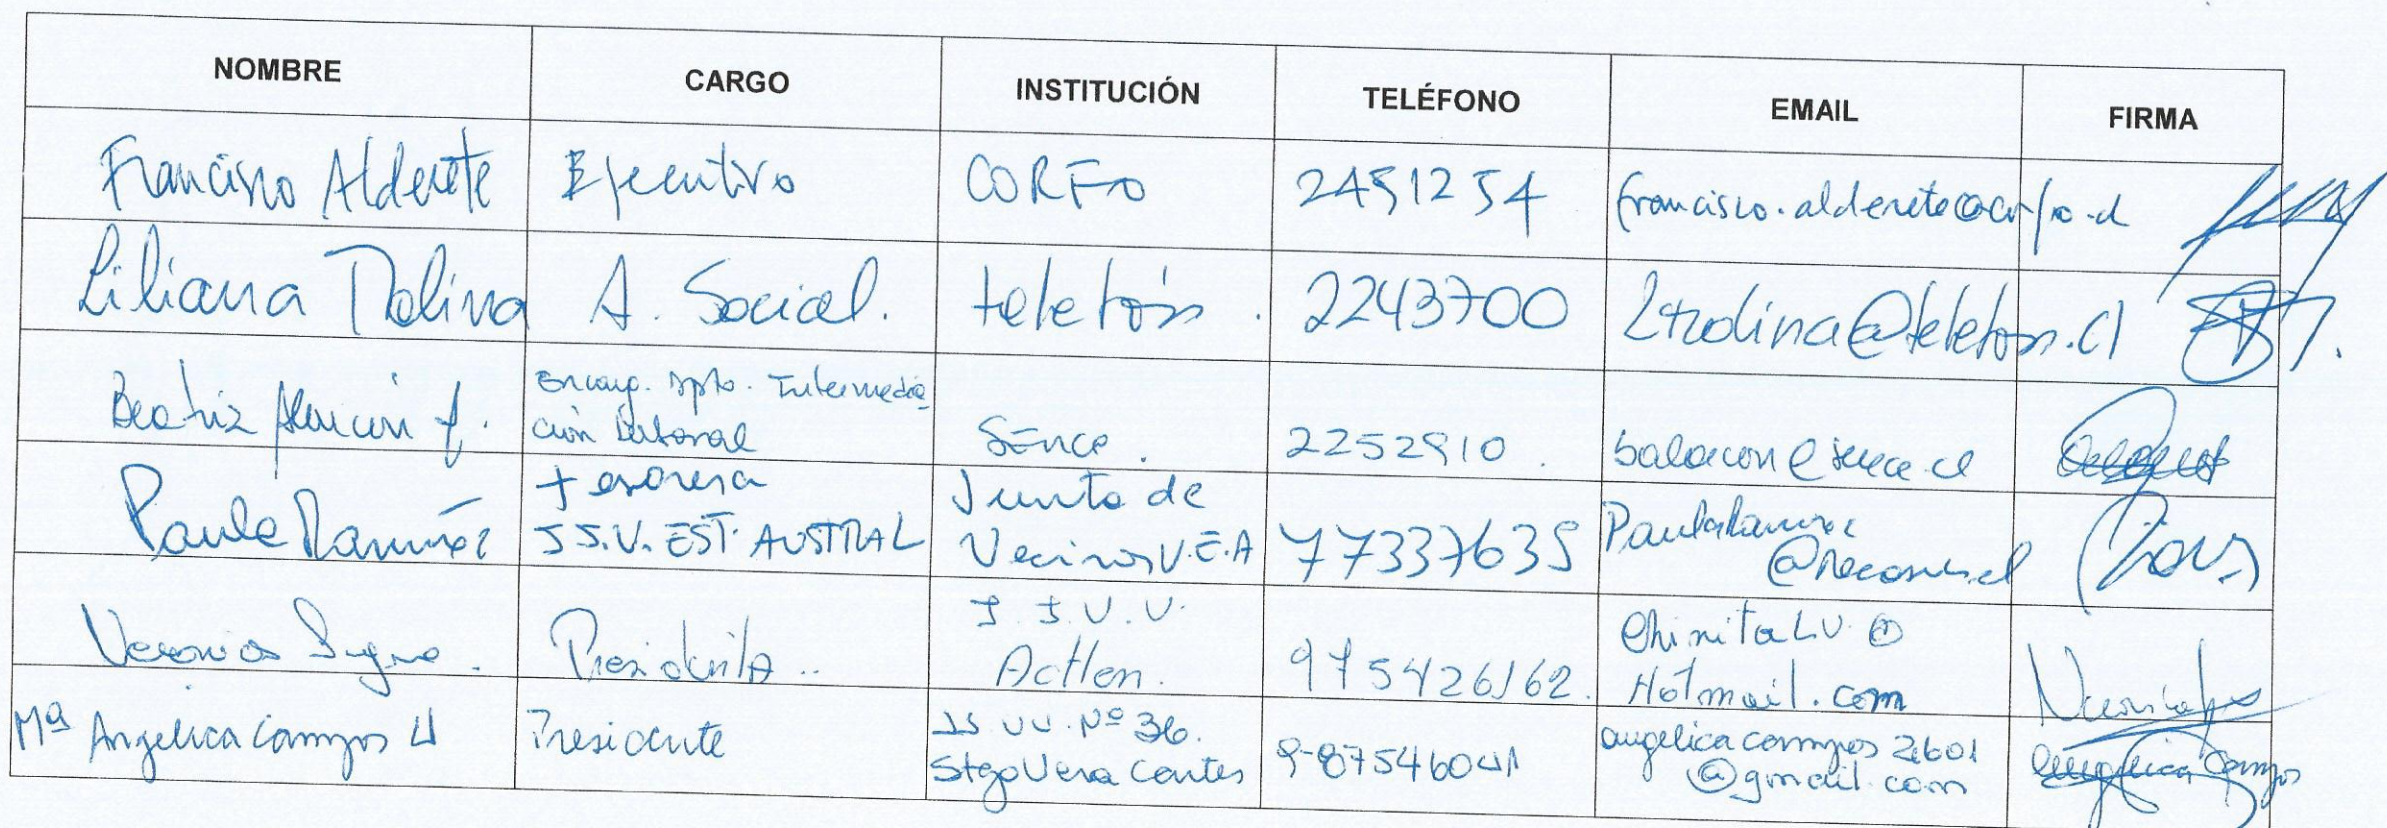 NOMBRE CARGO INSTITUCIÓN TELÉFONO EMAIL FIRMA
Francisco Alderete Ejecutivo CORFO 2451254 francisco.alderete@corfo.cl
Liliana Molina A. Social. teletón. 2243700 @teleton.cl
Beatriz Alarcón f. Encarg. Dpto. Intermedia
ción Laboral Sence. balarcon@sence.cl
Paula Ramírez Tesorera Junta de
JJ.V. EST. AUSTRAL Vecinos V.E.A 77337635
Veronica Presidenta.. J.J.V.V.
975426162. ChinitaLV.@
Hotmail.com
Mª Angelica Campos U Presidente JJ VV. Nº 36.
Stgo Vera Cortes angelica campos 2601
@gmail.com
Angelica Campos